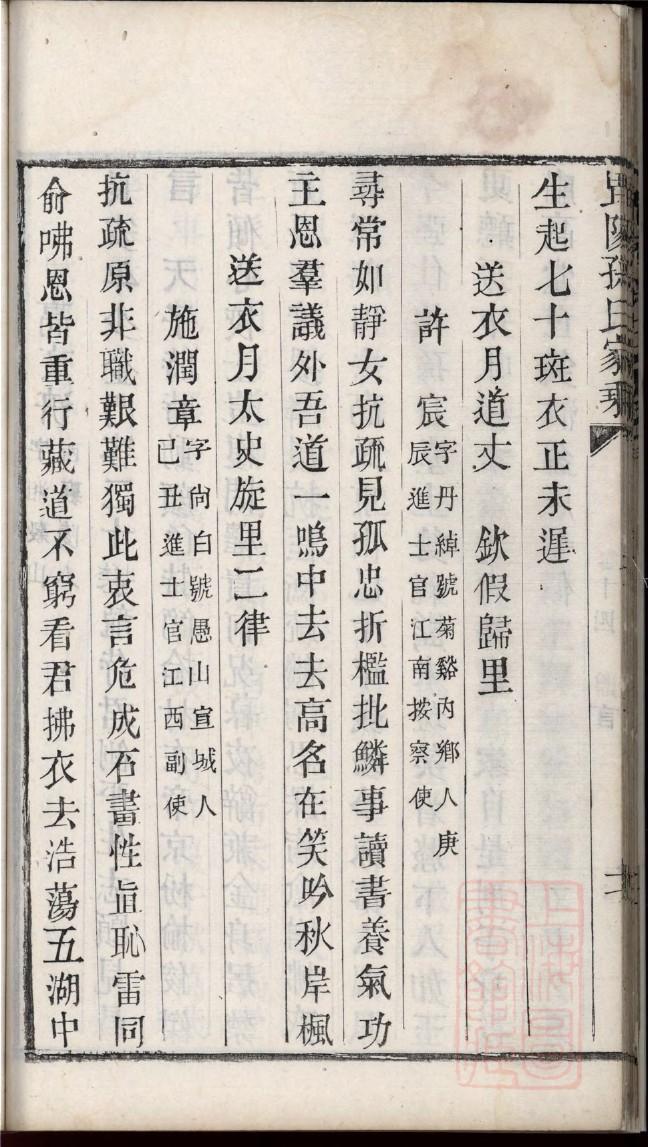 毘陵孫氏家乘
生起七十斑衣正未遲
送衣月道丈 欽假歸里
許宸字丹綽號菊谿內鄉人庚
辰進士官江南按察使
尋常如靜女抗疏見孤忠折檻批鱗事讀書養氣功
主恩羣議外吾道一鳴中去去高名在笑吟秋岸楓
送衣月太史旋里二律
施潤章字尙白號愚山宣城人
己丑進士官江西副使
抗疏原非職艱難獨此衷言危成石畫性直恥雷同
俞咈恩皆重行藏道不窮看君拂衣去浩蕩五湖中